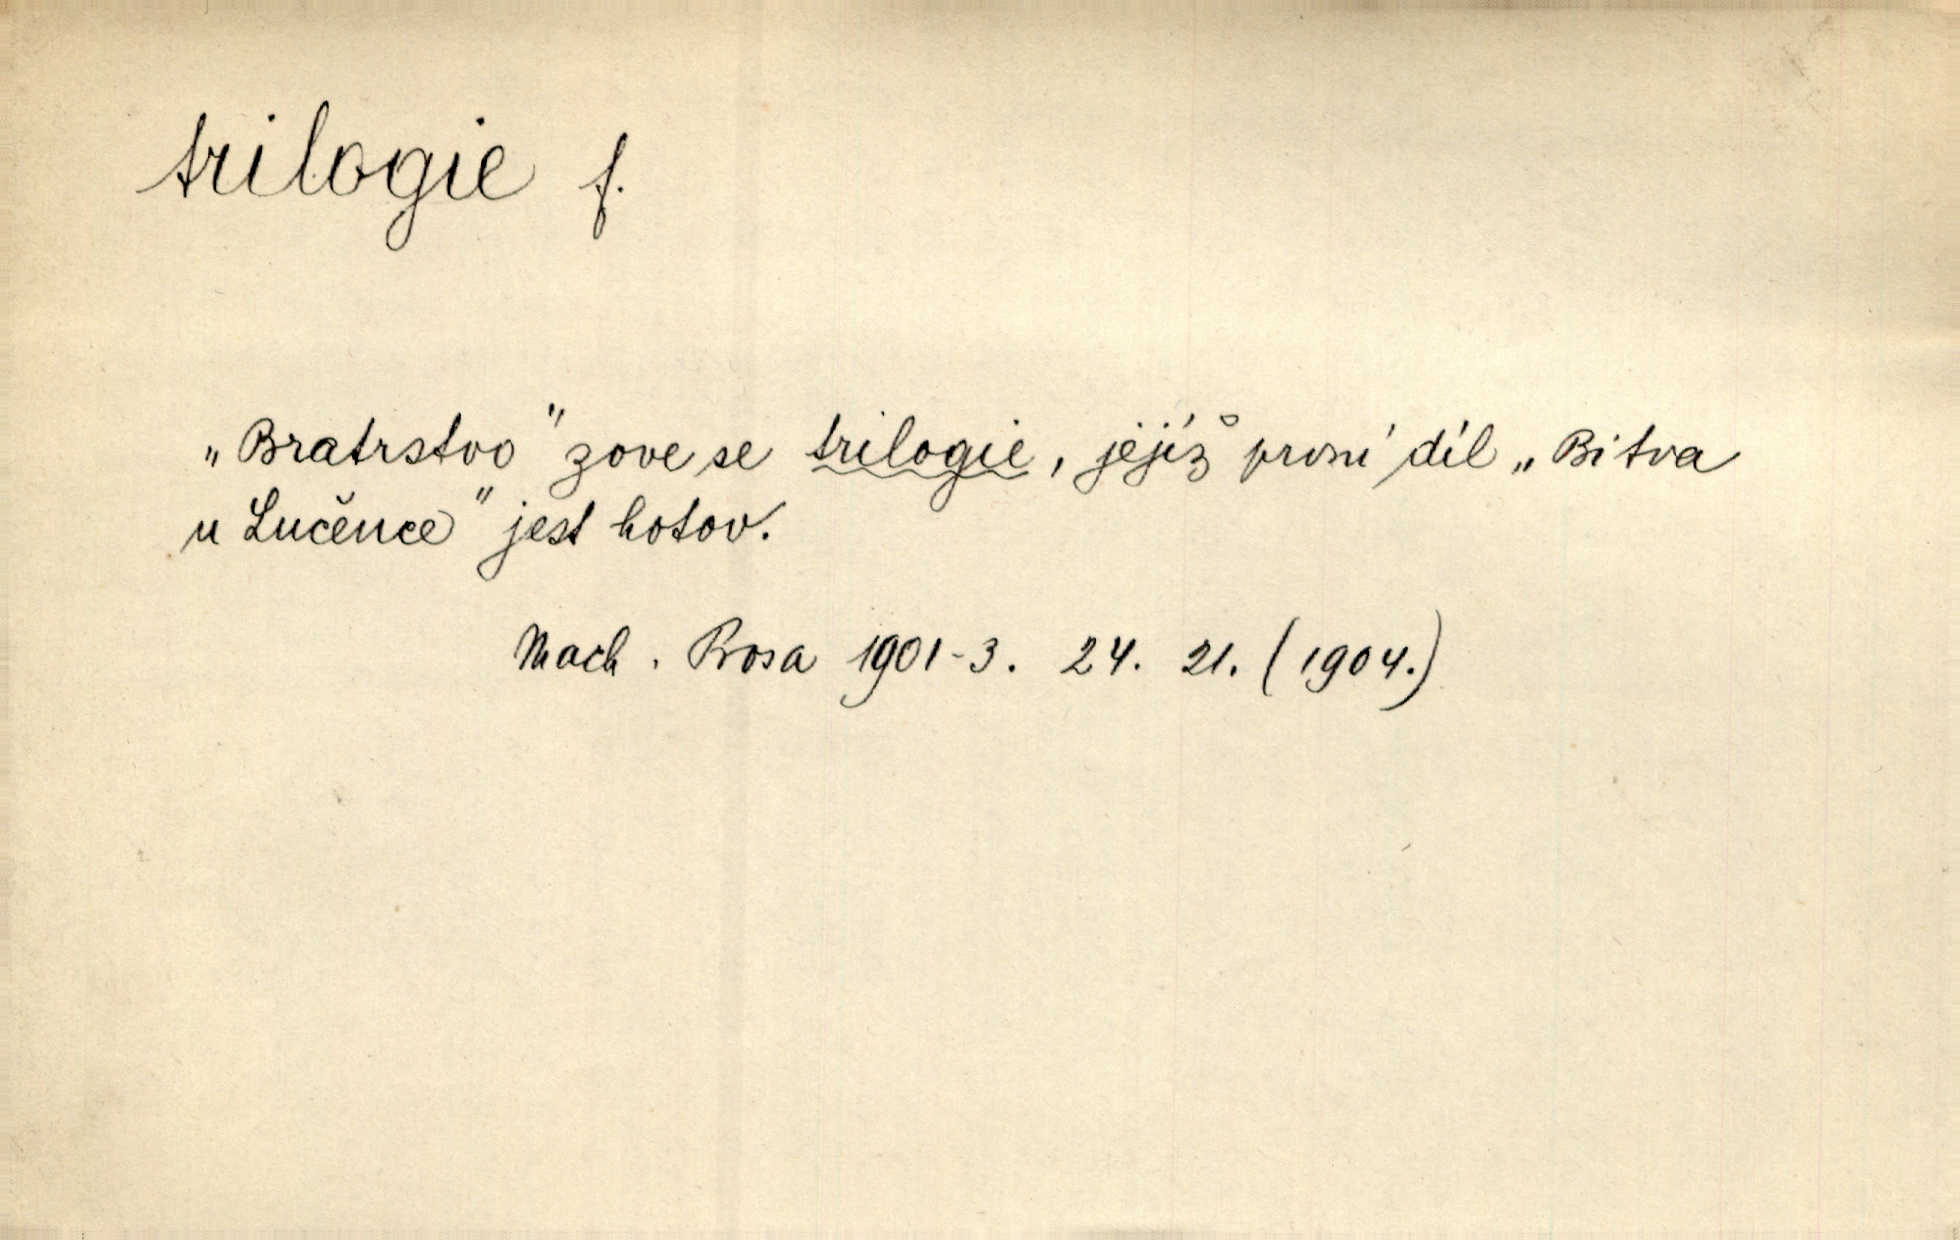 trilogie f.
„Bratrstvo" zove se trilogie, jejíž první díl „Bitva
u Lučence" jest hotov.
Mach. Prosa 1901-3. 24. 21. (1904.)